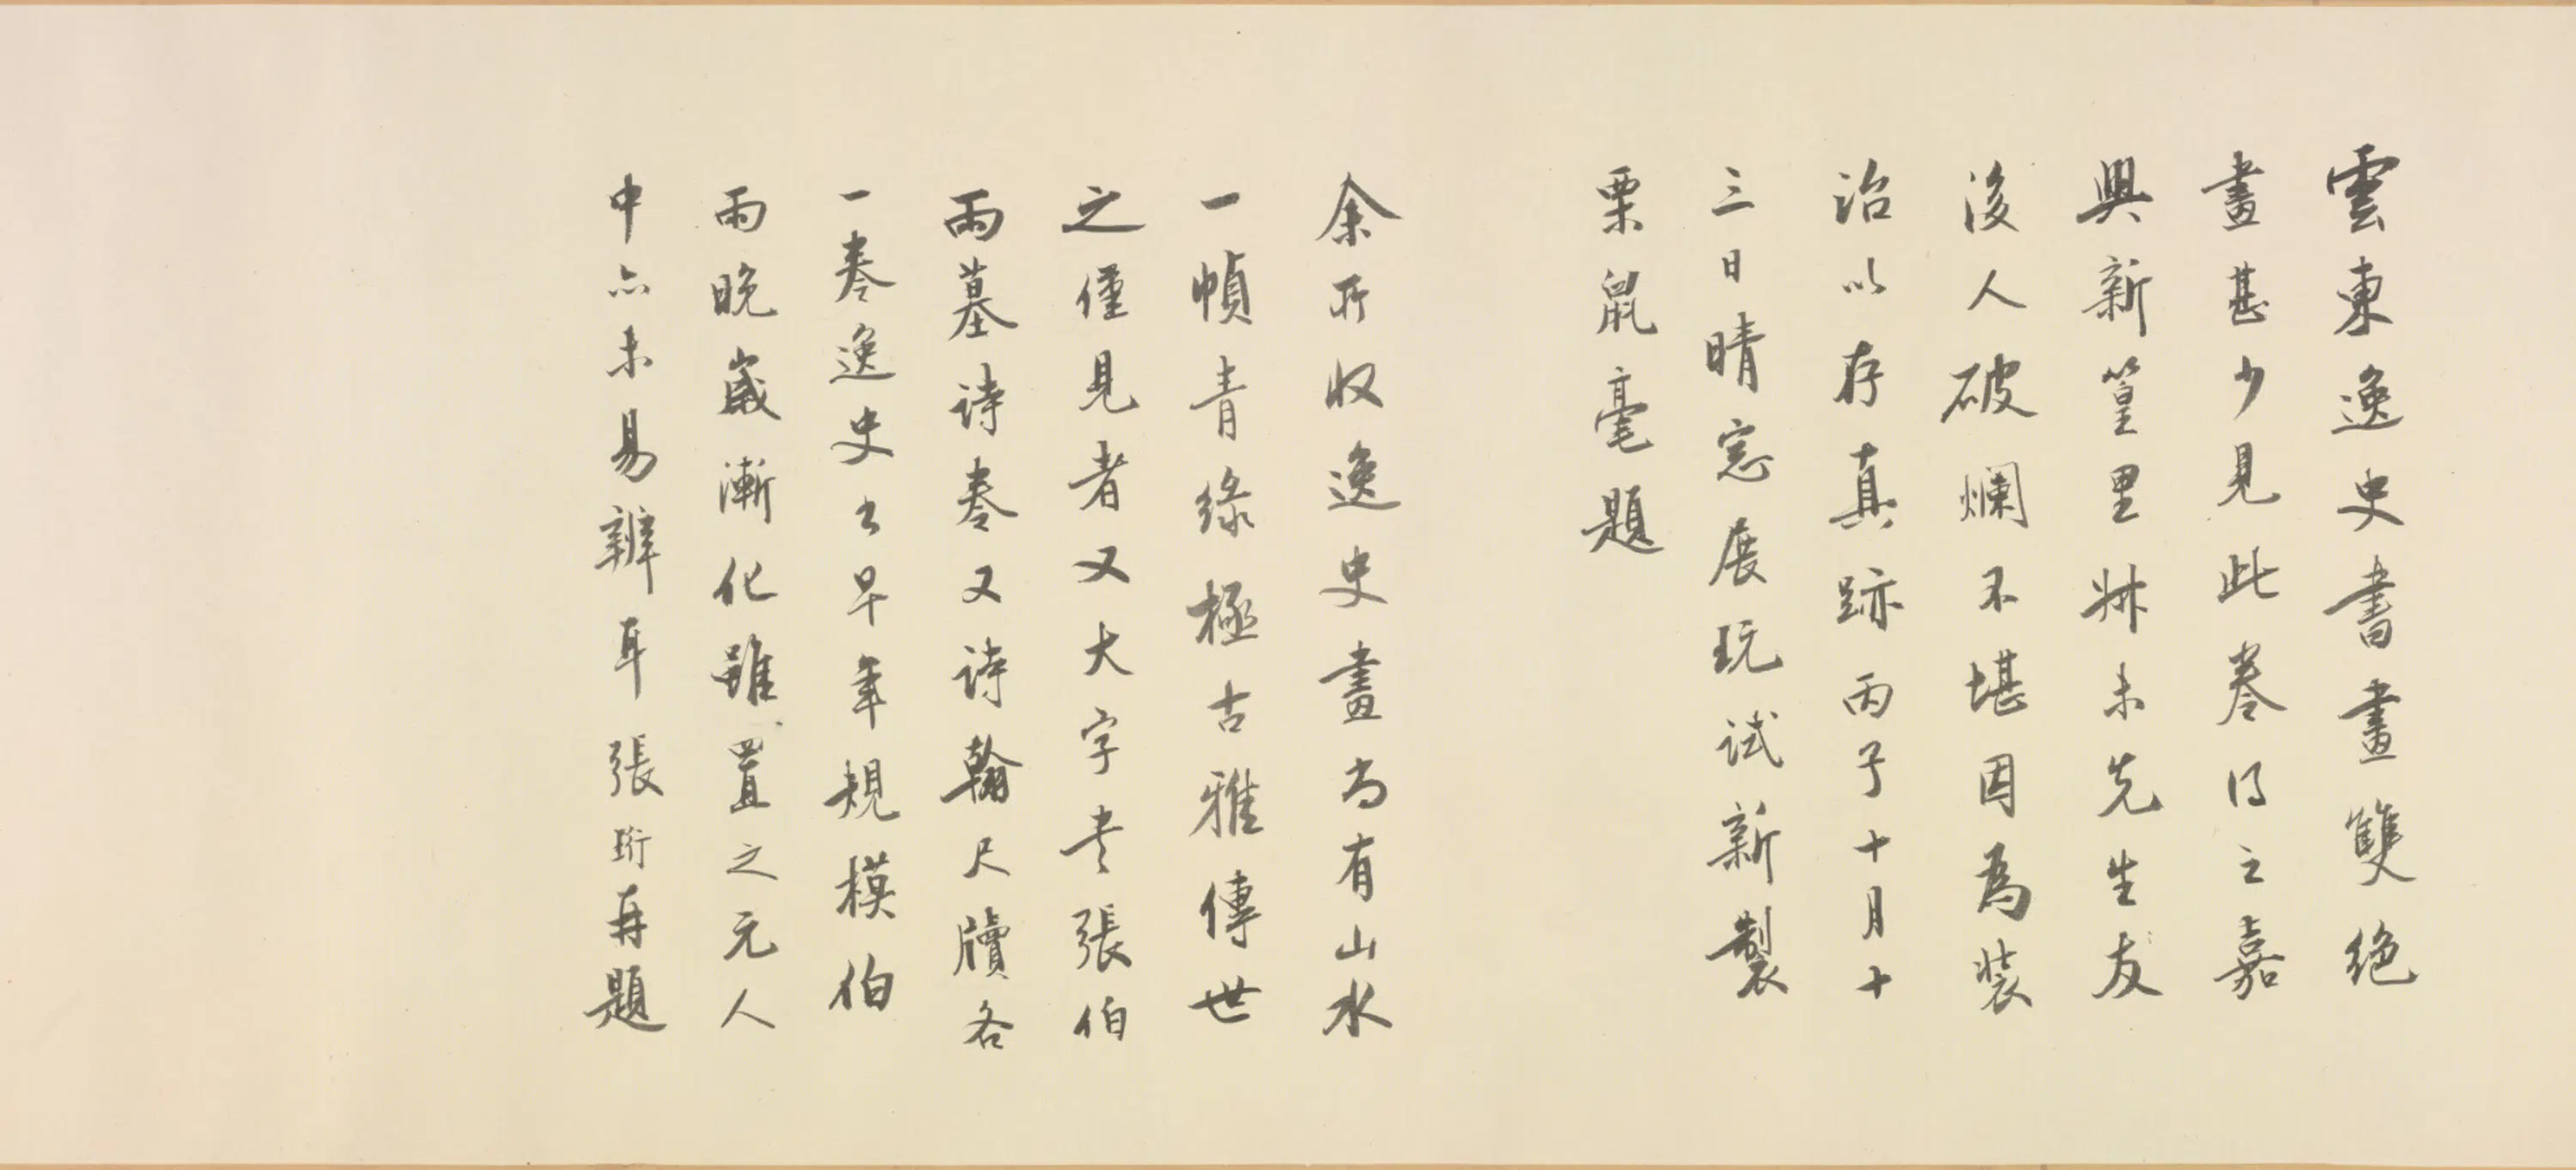 雲東逸史書畫雙絕
畫甚少見此卷得之嘉
興新篁里叔未先生友
後人破爛不堪因為裝
治以存真跡丙子十月十
三日晴窓展玩試新製
栗鼠毫題
余所收逸史畫尚有山水
一幀青綠極古雅傳世
之僅見者又大字書張伯
雨墓詩卷又詩翰尺牘各
一卷逸史書早年規模伯
雨晚歲漸化雖置之元人
中亦未易辨耳張珩再題